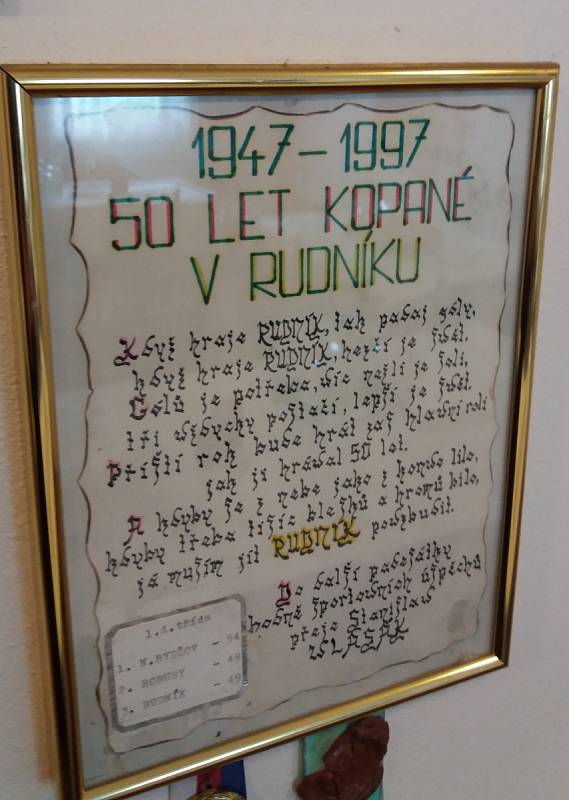 1947-1997
50 LET KOPANÉ
V RUDNÍKU
Když hraje RUDNÍK, tak padaj góly,
když hraje RUDNÍK, hezčí je svět.
Gólů je potřeba, víc nežli je soli,
tři vždycky postačí, lepší je svět.
Příští rok bude hrát zas hlavní roli
jak ji hrával 50 let.
A kdyby se z nebe jako z konve lilo,
kdyby třeba tisíc blesků a hromů bilo,
já musím jít RUDNÍK povzbudit.
Do další padesátky
hodně sportovních úspěchů
přeje Stanislav
VLASÁK
1.A.třída
1. N.BYDŽOV - 54
2. ROBUSY - 49
3. RUDNÍK - 49